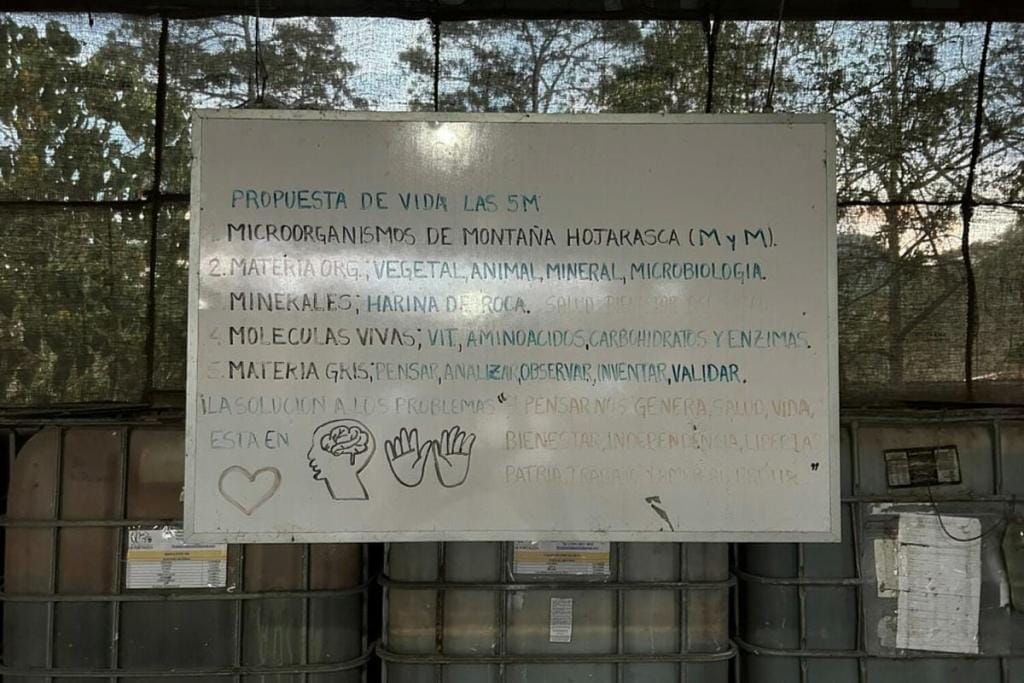 PROPUESTA DE VIDA LAS 5M
MICROORGANISMOS DE MONTAÑA HOJARASCA (M y M).
2. MATERIA ORG.; VEGETAL, ANIMAL, MINERAL, MICROBIOLOGIA.
MINERALES; HARINA DE ROCA. SALUD
4. MOLECULAS VIVAS; VIT, AMINOACIDOS, CARBOHIDRATOS Y ENZIMAS.
5. MATERIA GRIS; PENSAR, ANALIZAR, OBSERVAR, INVENTAR, VALIDAR.
¡LA SOLUCION A LOS PROBLEMAS "PENSAR NOS GENERA, SALUD, VIDA,
ESTA EN BIENESTAR, INDEPENDENCIA,
PATRIA, TRABAJO Y "